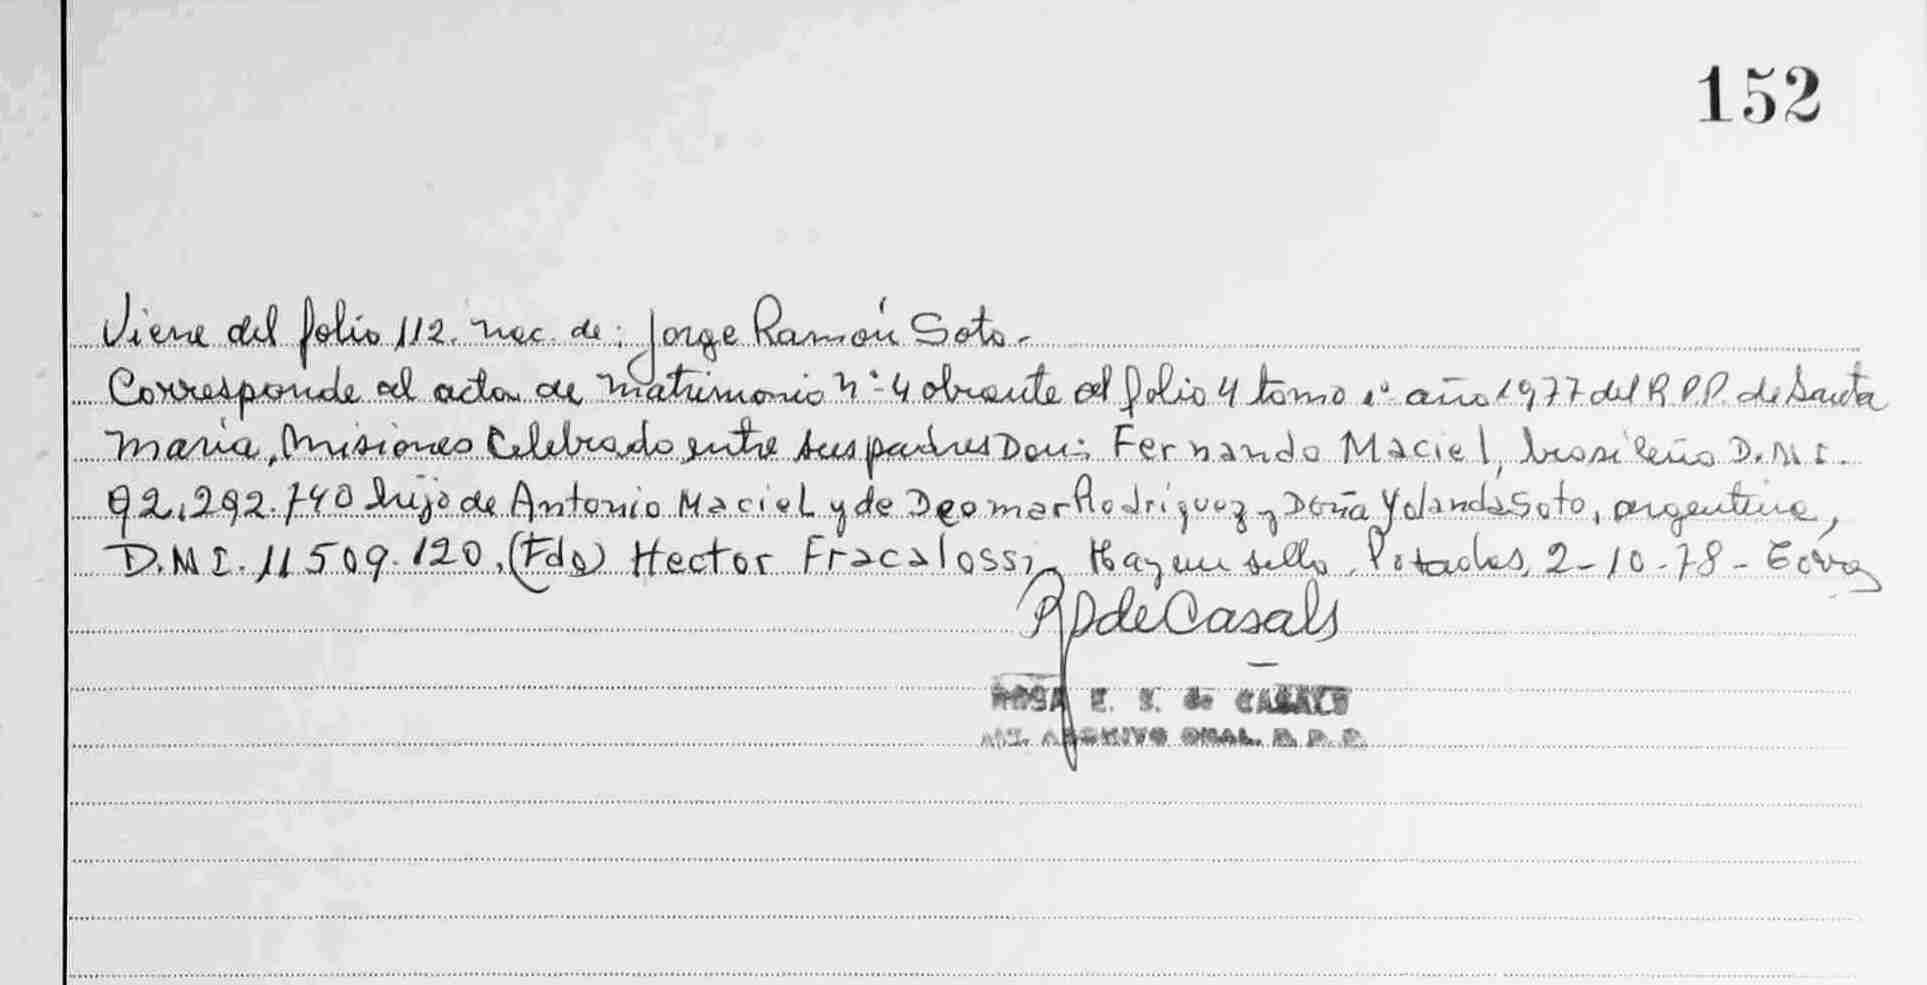 152
Viene del folio 112. nac. de: Jorge Ramón Soto.-
Corresponde al acta de matrimonio nº 4 obrante al folio 4 tomo 1º año 1977 del R.P.P. de Santa
María, Misiones Celebrado entre sus padres Don: Fernando Maciel, brasileño D.N.I.
92.292.740 hijo de Antonio Maciel y de Deomar Rodríguez y Doña Yolanda Soto, argentina,
D.N.I. 11 509.120. (Fdo) Hector Fracalossi, Hay un sello. Posadas, 2-10-78-
de Casals
ROSA E. S. de CASALS
ARCHIVO GRAL. R. P. P.